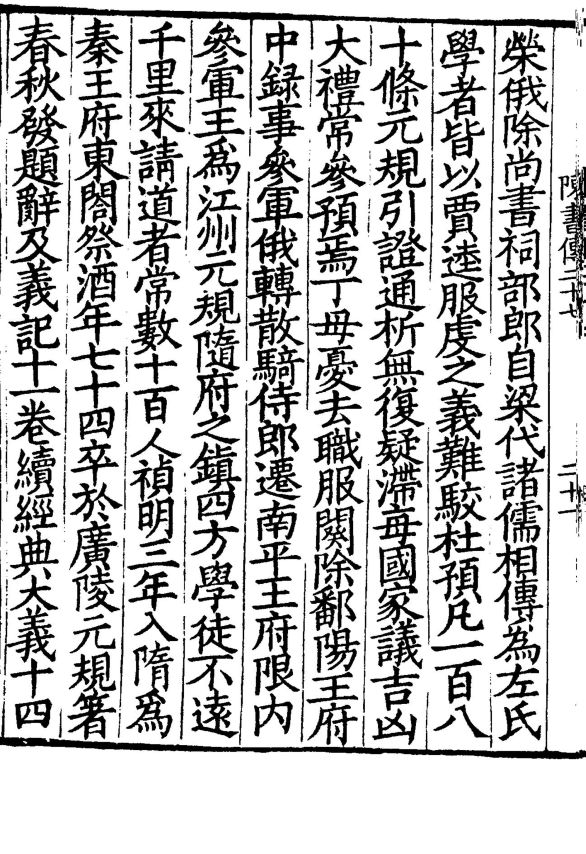 陳書傳二十七
二十一
榮俄除尚書祠部郎自梁代諸儒相傳為左氏
學者皆以賈逵服虔之義難駮杜預凡一百八
十條元規引證通析無復疑滯每國家議吉凶
大禮常參預焉丁母憂去職服闋除鄱陽王府
中録事參軍俄轉散騎侍郎遷南平王府限内
參軍王為江州元規隨府之鎮四方學徒不遠
千里來請道者常數十百人禎明三年入隋為
秦王府東閤祭酒年七十四卒於廣陵元規著
春秋發題辭及義記十一卷續經典大義十四